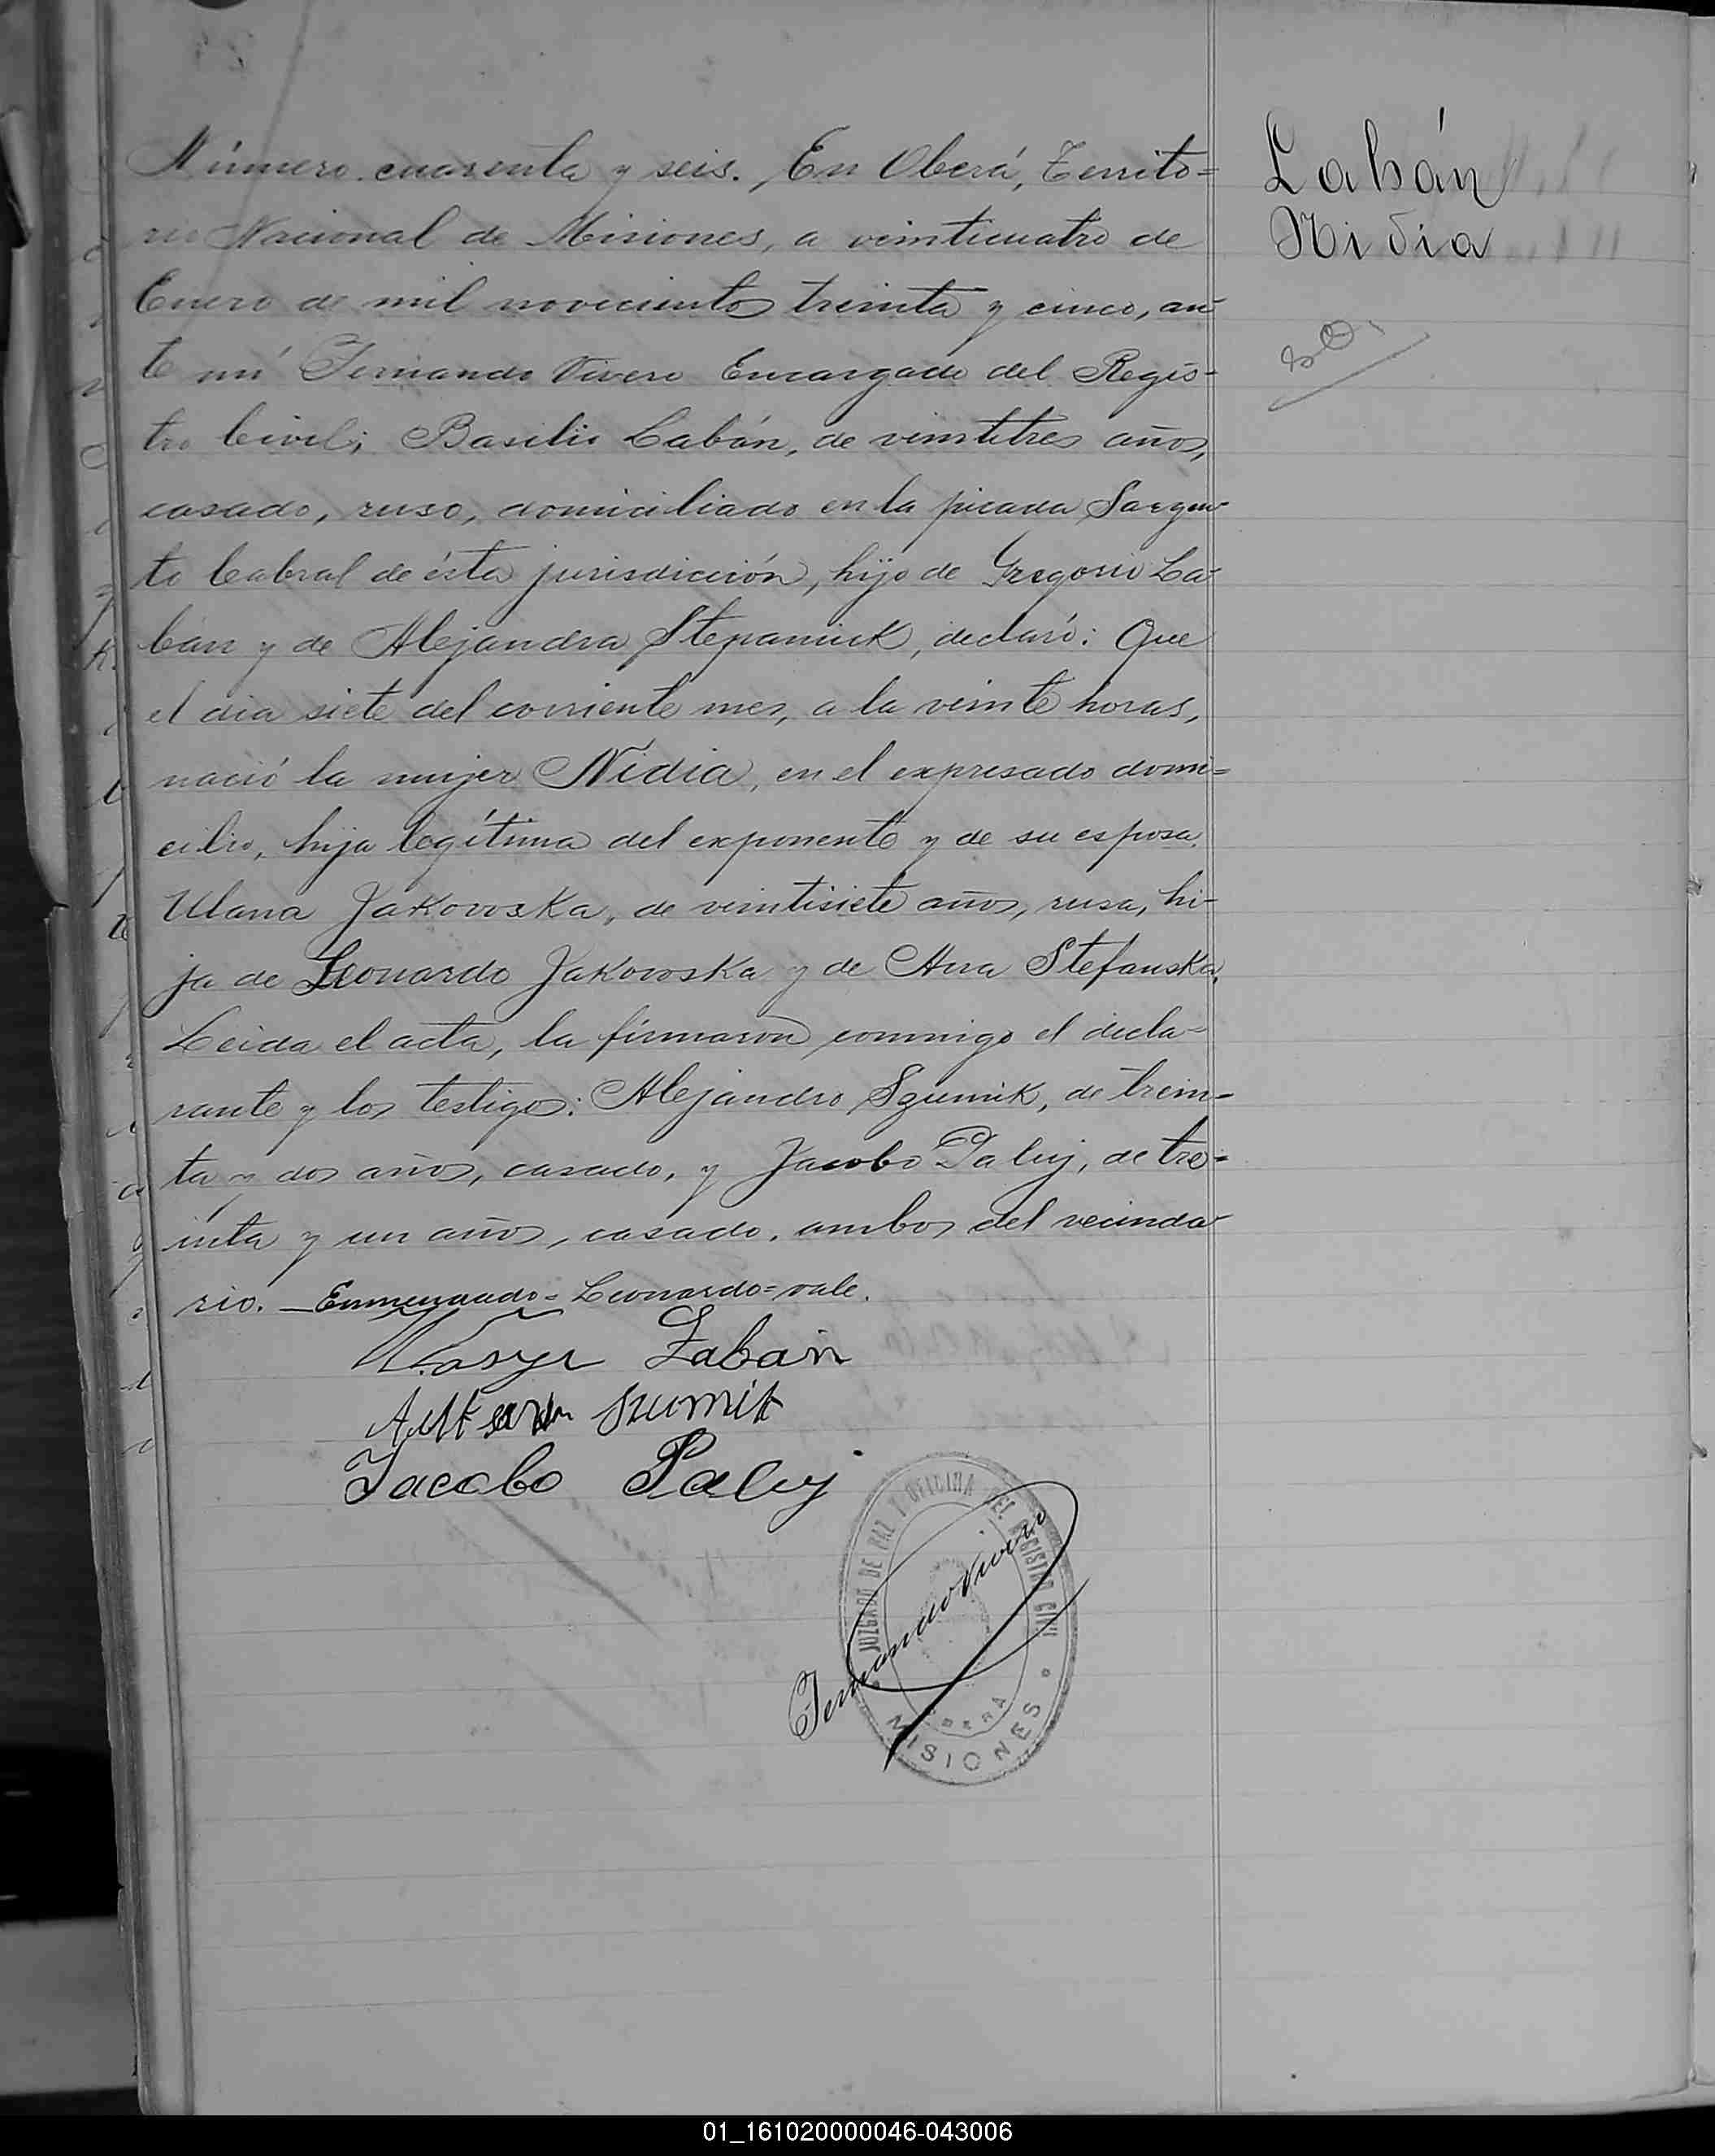 Número cuarenta y seis. En Oberá, Territo=
rio Nacional de Misiones, a veinticuatro de
Enero de mil novecientos treinta y cinco, an-
te mí Fernando Vivero Encargado del Regis-
tro Civil; Basilio Labán, de veintitres años,
casado, ruso, domiciliado en la picada Sargen-
to Cabral de ésta jurisdicción, hijo de Gregorio La-
bán y de Alejandra Stepaniuk, declaró: Que
el dia siete del corriente mes, a la veinte horas,
nació la mujer Nidia, en el expresado domi=
cilio, hija legítima del exponente y de su esposa
Ulana Jakovoska, de veintisiete años, rusa, hi-
ja de Leonardo Jakovoska y de Ana Stefanska.
Leida el acta, la firmaron conmigo el decla-
rante y los testigos: Alejandro Szumik, de trein-
ta y dos años, casado, y Jacobo Paluj, de tre=
inta y un años, casado, ambos del vecinda-
rio. — Enmendado = Leonardo = vale.
Labán
Nidia
Wasyl Laban
Szumik
Jacobo Paluj
Fernando Vivero
JUZGADO DE PAZ Y OFICINA DEL REGISTRO CIVIL
OBERA
MISIONES
01_161020000046-043006